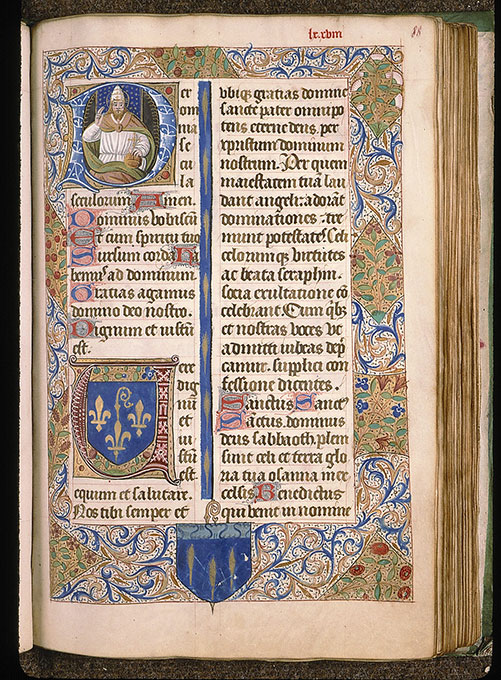 lxviii
88
Per
om
nia
se
cu
la
seculorum Amen.
Dominus vobiscū
Et cum spiritu tuo
Sursum corda Ha
bemꝰ ad dominum
Gratias agamus
domino deo nostro.
Dignum et iustū
est.
Uere
dig
nū
et
iu
stū
est
equum et salutare.
Nos tibi semper et
vbiqꝫ gratias domine
sancte pater omnipo
tens eterne deus. per
xpristum dominum
nostrum. Per quem
maiestatem tuā lau
dant angeli: adorāt
dominationes: tre
munt potestates. Celi
celorumqꝫ virtutes
ac beata seraphin.
socia exultatione cō
celebrant. Cum qꝫbꝫ
et nostras voces vt
admitti iubeas dep̄
camur. supplici con
fessione dicentes.
Sanctus Sancꝰ
Sāctus. dominus
deus sabbaoth. pleni
sunt celi et terra glo
ria tua osanna in ex
celsis Benedictus
qui venit in nomine